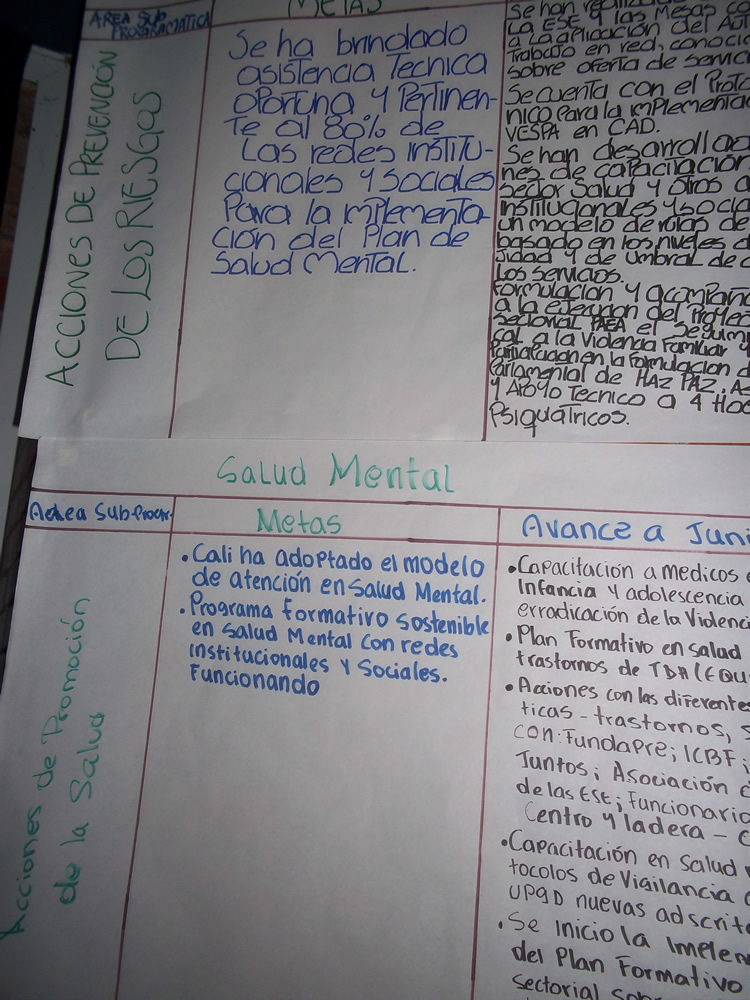 AREA SUB
PROGRAMATICA
METAS
ACCIONES DE PREVENCIÓN
DE LOS RIESGOS
Se ha brindado
asistencia Tecnica
oportuna y Pertinen-
te al 80% de
Las redes institu-
cionales y sociales
Para la implementa-
ción del Plan de
Salud Mental.
Se han
La ESE y las Mesas
a La aplicación del
Trabajo en red, conoc
sobre oferta de servic
Se cuenta con el Proto
nico Para la implementa
VESPA en CAD.
Se han desarrollado
nes de capacitación
Sector Salud y otros
institucionales y socia
un modelo de rutas de
basado en los niveles
jidad y de umbral de
Los servicios.
Formulacion y acompañ
a la ejecucion del Proyec
Sectorial PAEA el segum
gal a la Violencia Familiar y
Participacion en la Formulacion d
Parlamental de HAZ PAZ. As
y Apoyo Tecnico a 4 Hos
Psiquátricos.
Salud Mental
Aerea SubProgr.
Metas
Avance a Juni
Acciones de Promoción
de la Salud
• Cali ha adoptado el modelo
de atención en Salud Mental.
• Programa formativo sostenible
en salud Mental con redes
institucionales y Sociales.
Funcionando
• Capacitación a medicos
Infancia y adolescencia
erradicación de la Violenci
• Plan Formativo en salud
trastornos de TDA (EQU
• Acciones con las diferentes
ticas - trastornos, s
con: Fundapre; ICBF;
Juntos; Asociación
de las ESE; Funcionario
Centro y ladera - C
• Capacitación en Salud
tocolos de Vigilancia
UPGD nuevas adscrit
• Se Inicio la Implem
del Plan Formativo
sectorial